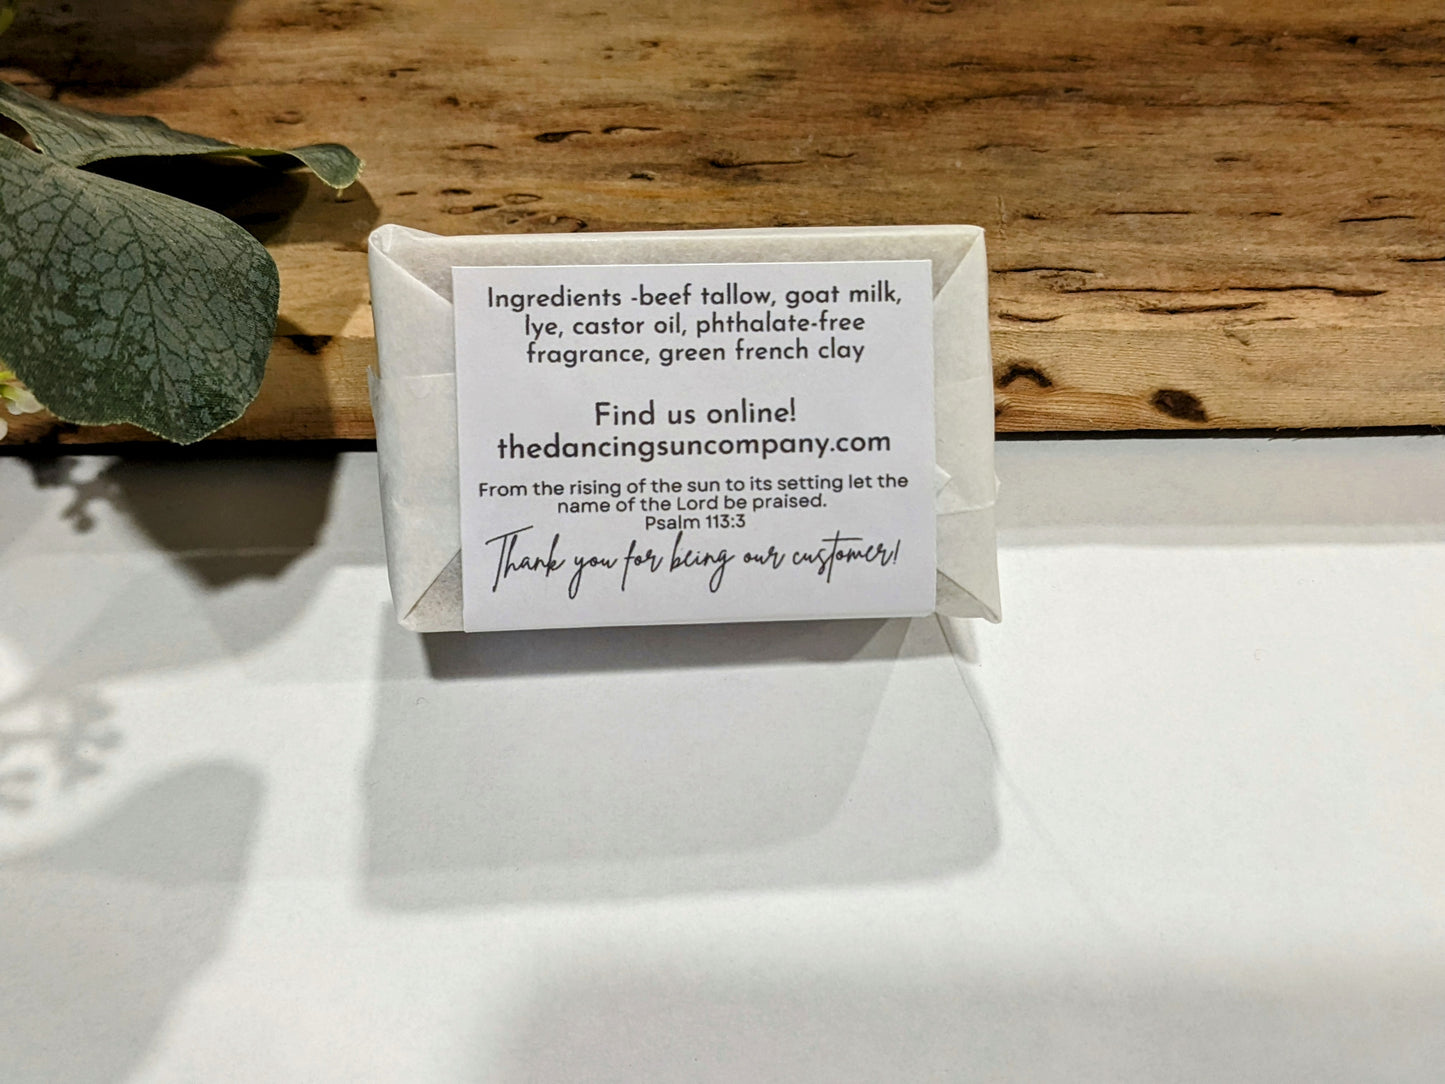 Ingredients -beef tallow, goat milk,
lye, castor oil, phthalate-free
fragrance, green french clay
Find us online!
thedancingsuncompany.com
From the rising of the sun to its setting let the
name of the Lord be praised.
Psalm 113:3
Thank you for being our customer!